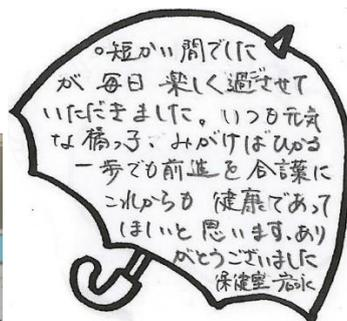 ○短かい間でした
が 毎日 楽しく過させて
いただきました。いつも元気
な橘っ子、みがけばひかる
一歩でも前進を合言葉に
これからも 健康であって
ほしいと思います、あり
がとうございました
保健室